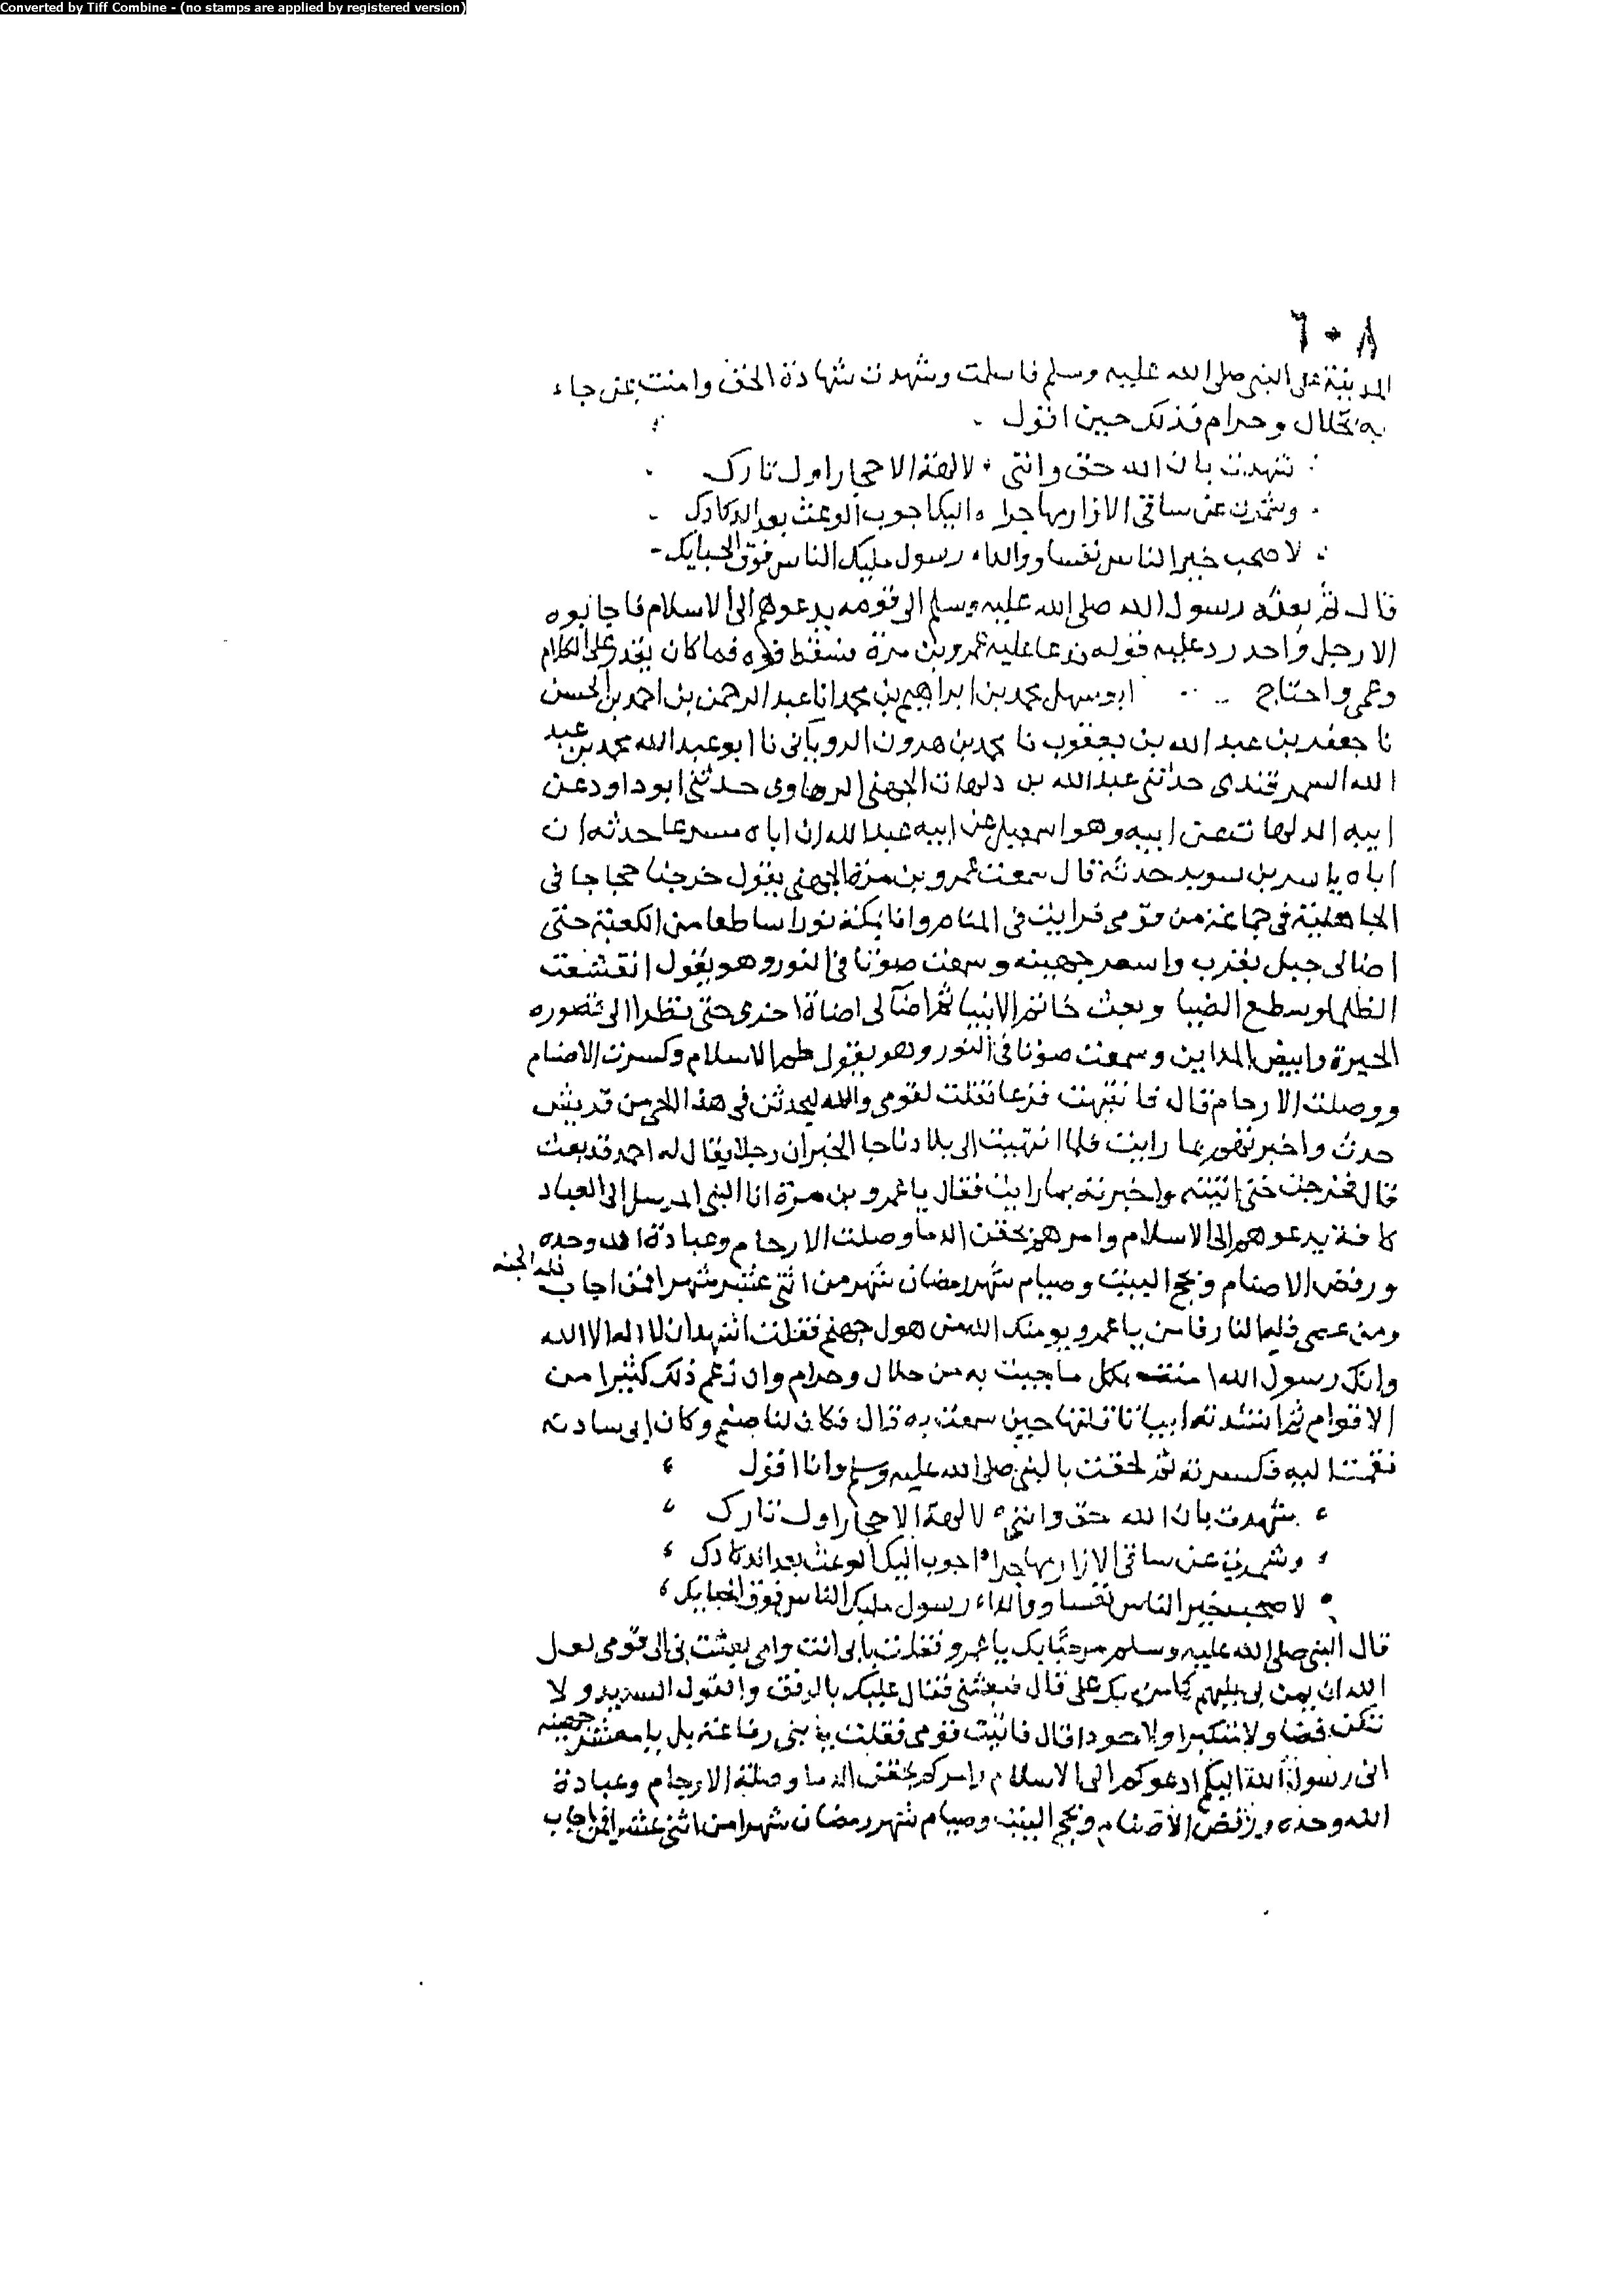 Converted by Tiff Combine - (no stamps are applied by registered version)
٦٠٨
المدينة على النبي صلى الله عليه وسلم فاسلمت وشهدت شهادة الحق وامنت بمن جاء
به بحلال وحرام فذلك حين اقول
شهدت بان الله حق وانني لالهة الاحجار اول تارك
وشمرت عن ساقي الازار مهاجرا اليك اجوب الوعث بعد الدكادك
لاصحب خير الناس نفسا ووالدا رسول مليك الناس فوق الحبايك
قال ثم بعثه رسول الله صلى الله عليه وسلم الى قومه يدعوهم الى الاسلام فاجابوه
الا رجل واحد رد عليه قوله فدعا عليه عمرو بن مرة فسقط فوه فما كان يقدر على الكلام
وعمي واحتاج ابو سهل محمد بن ابراهيم بن محمد انا عبد الرحمن بن احمد بن الحسن
نا جعفر بن عبد الله بن يعقوب نا محمد بن هرون الروياني نا ابو عبد الله محمد بن عبد
الله السمرقندي حدثني عبد الله بن دلهاث الجهني الرهاوي حدثني ابو داود عن
ابيه الدلهاث عن ابيه وهو اسمعيل عن ابيه عبد الله ان اباه مسرعا حدثه ان
اباه ياسر بن سويد حدثه قال سمعت عمرو بن مرة الجهني يقول خرجنا حجاجا في
الجاهلية في جماعة من قومي فرايت في المنام وانا بمكة نورا ساطعا من الكعبة حتى
اضا لي جبل يثرب واسعر جهينه وسمعت صوتا في النور وهو يقول انقشعت
الظلما وسطع الضيا وبعث خاتم الانبيا ثم اضا لي اضاة اخرى حتى نظرا الى قصوره
الحيرة وابيض المداين وسمعت صوتا في النور وهو يقول ظهر الاسلام وكسرت الاصنام
ووصلت الارحام قال فانتبهت فزعا فقلت لقومي والله ليحدثن في هذا الحي من قريش
حدث واخبرتهم بما رايت فلما انتهيت الى بلادنا جا الخبر ان رجلا يقال له احمد قد بعث
قال فخرجت حتى اتيته واخبرته بما رايت فقال يا عمرو بن مرة انا النبي المرسل الى العباد
كافة يدعوهم الى الاسلام وامرهم بحقن الدما وصلت الارحام وعبادة الله وحده
ورفض الاصنام وبحج البيت وصيام شهر رمضان شهر من اثني عشر شهرا فمن اجاب فله الجنه
ومن عصى فله النار فامن يا عمرو يومنك الله من هول جهنم فقلت اشهد ان لا اله الا الله
وانك رسول الله بكل ما جيت به من حلال وحرام وان زعم ذلك كثيرا من
الاقوام ثم انشدته ابياتا قلتها حين سمعت به قال فكان لنا صنم وكان ابي سادنه
فقمت اليه فكسرته ثم لحقت بالنبي صلى الله عليه وسلم وانا اقول
شهدت بان الله حق وانني لالهة الاحجار اول تارك
وشمرت عن ساقي الازار مهاجرا اجوب اليك الوعث بعد الدكادك
لاصحب خير الناس نفسا ووالدا رسول مليك الناس فوق الحبايك
قال النبي صلى الله عليه وسلم مرحبا بك يا عمرو فقلت بابي انت وامي بعثت بي الى قومي لعل
الله ان يمن بي عليهم كما من بك علي قال فبعثني فقال عليك بالرفق والقول السديد ولا
تكن فضا ولا متكبرا ولا حسودا قال فاتيت قومي فقلت يا بني رفاعة بل يا معشر جهينه
اني رسول الله اليكم ادعوكم الى الاسلام وامركم بحقن الدما وصلة الارحام وعبادة
الله وحده ورفض الاصنام وبحج البيت وصيام شهر رمضان شهرا من اثني عشر شهرا فمن اجاب